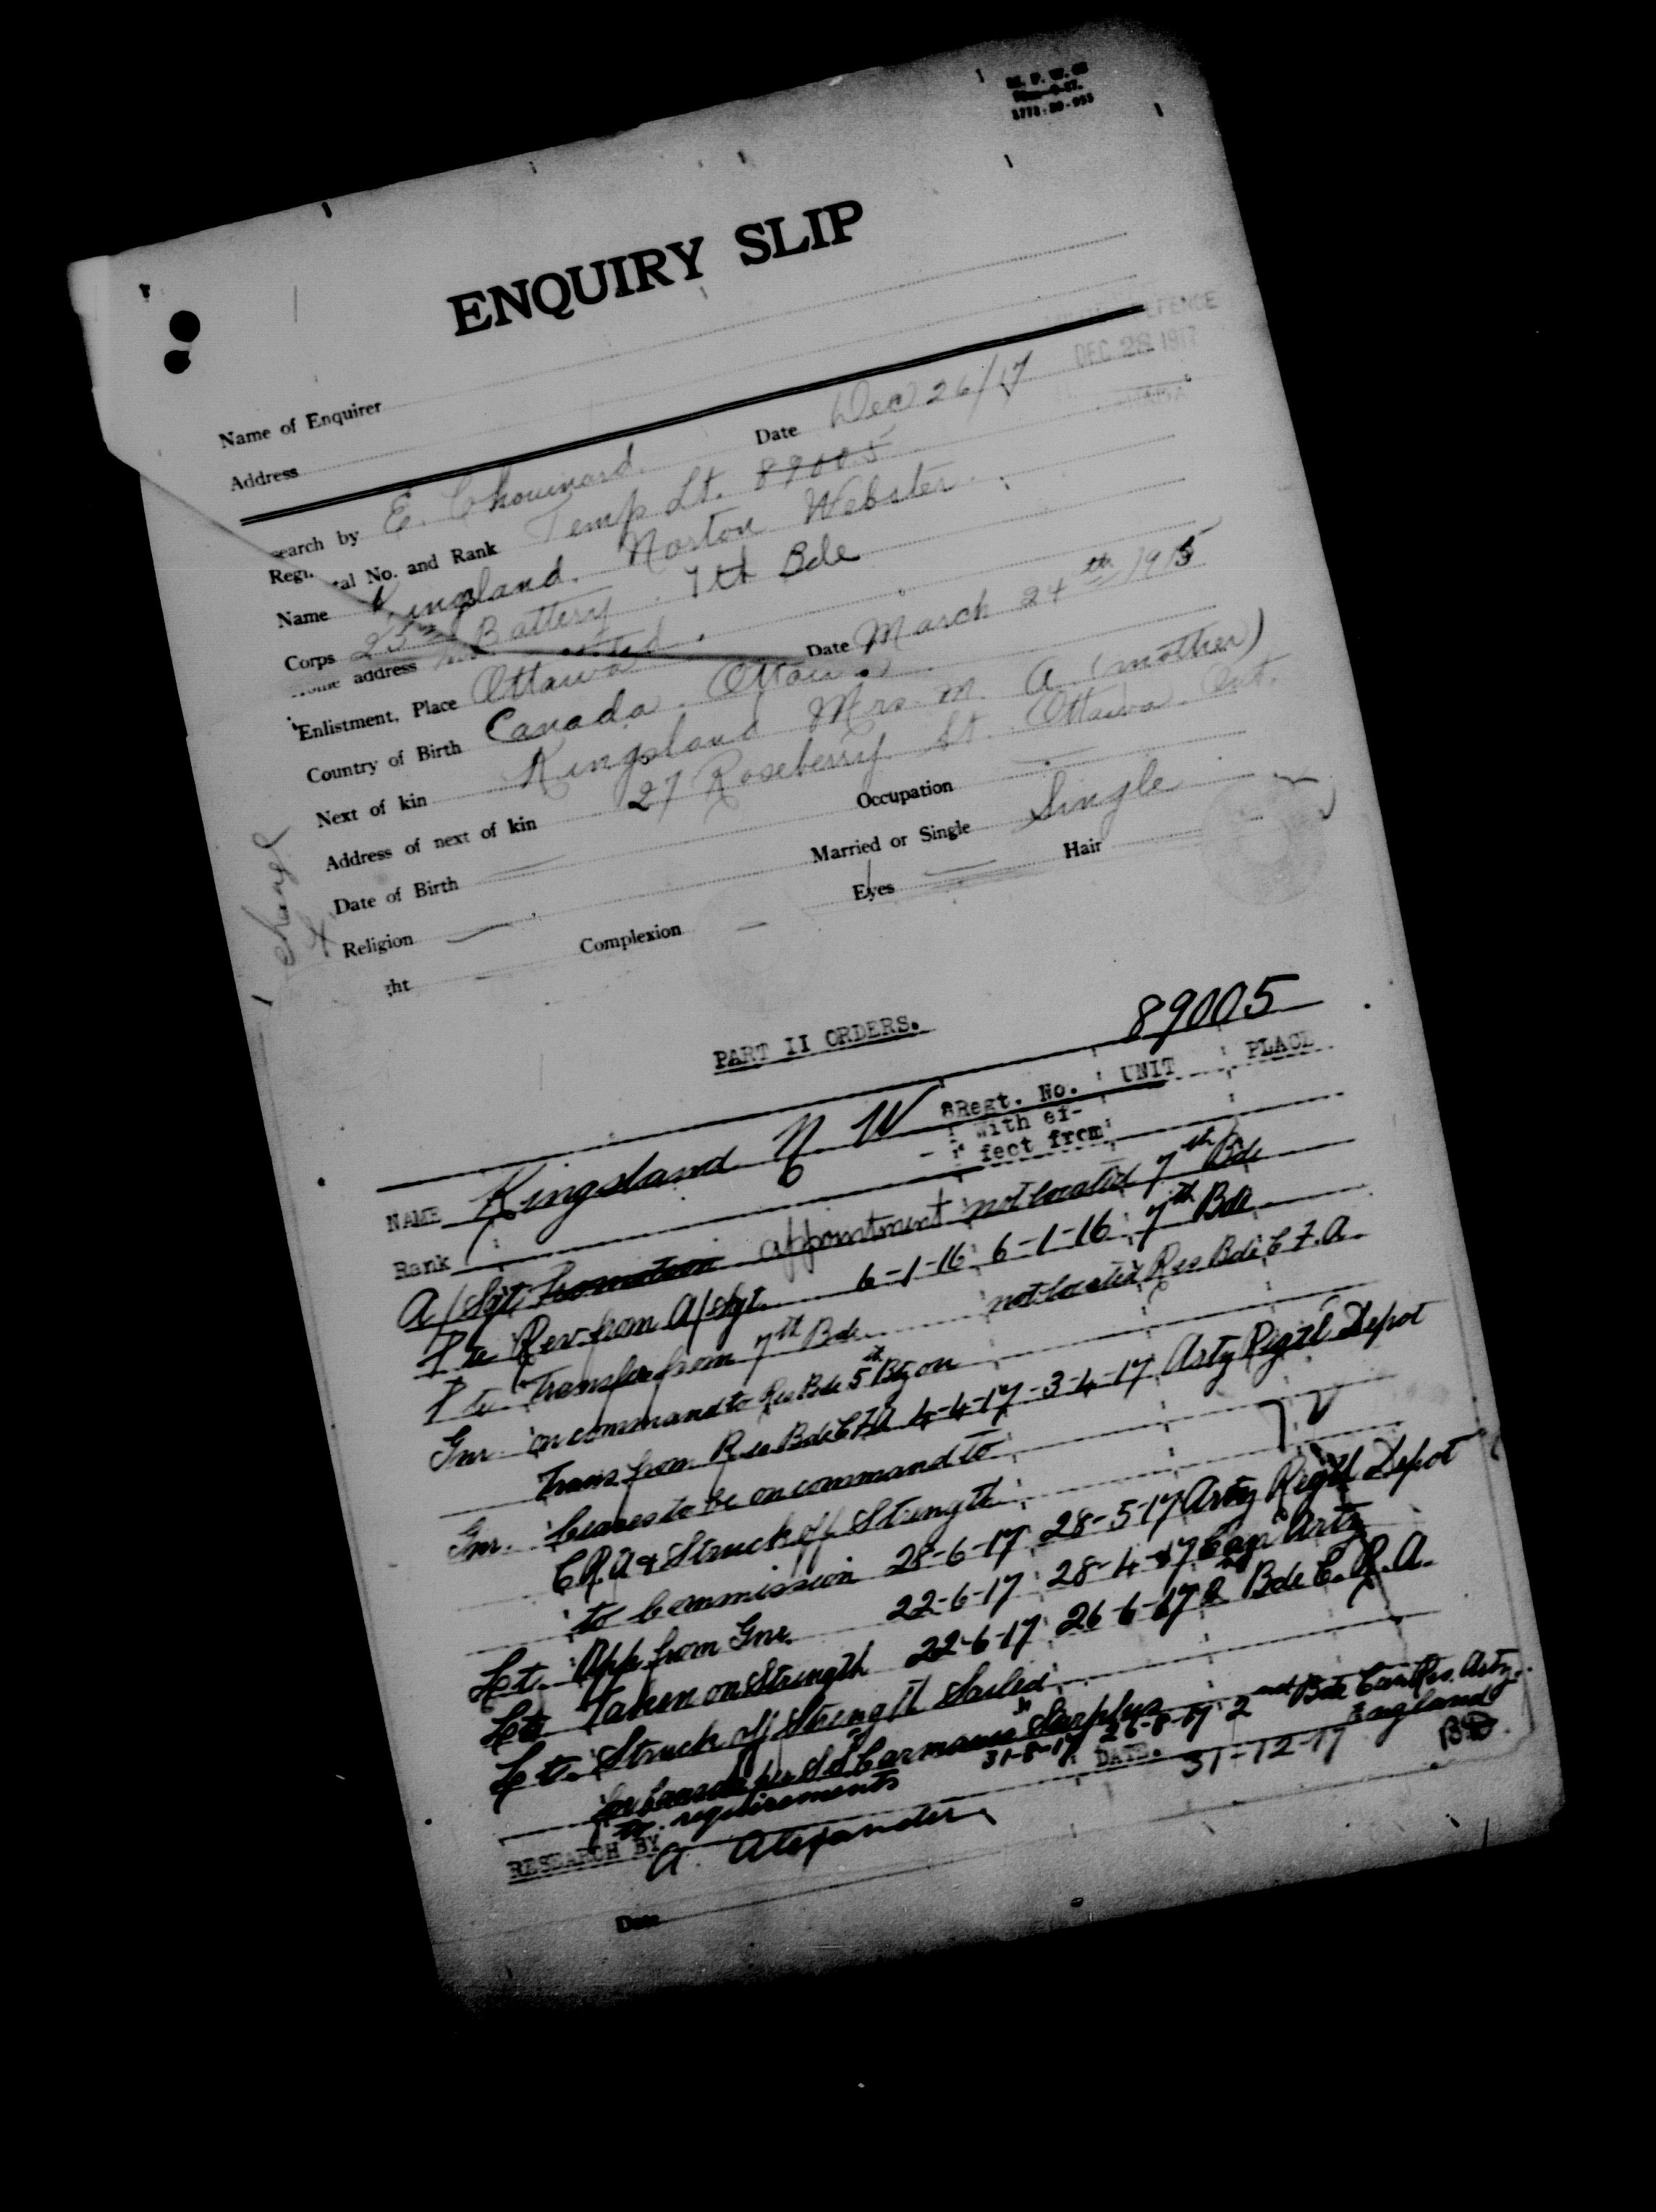 M. F. W. 66
1772-39-955
ENQUIRY SLIP
Name of Enquirer
Address
DEFENCE
DEC 28 1917
earch by E. Chouinard. Date Dec 26/17
Regi. tal No. and Rank Temp Lt. 89005
Name Kingsland. Norton Webster.
Corps 25th Battery. 7th Bde
address
Enlistment, Place Ottawa Date March 24th 1915
Country of Birth Canada. Ottawa
Next of kin Kingsland Mrs. M. A. (mother)
Address of next of kin 27 Roseberry St. Ottawa. Ont.
Date of Birth Occupation
Religion Married or Single Single
ght Complexion Eyes Hair
change
PART II ORDERS.
89005
NAME Kingsland N W Regt. No. UNIT PLACE
Rank With ef-
fect from
A/Sgt Promotion appointment not located 7th Bde
Pte Rev. from A/Sgt. 6-1-16 6-1-16 7th Bde
Pte Transfer from 7th Bde not located Res Bde C.F.A.
Gnr. on command to Res Bde 5th Bty on
Trans from Res Bde CFA 4-4-17 - 3-4-17 Arty Regtl Depot
Gnr. Ceases to be on command to
C.R.A & Struck off Strength
to Commission 28-6-17 28-5-17 Arty Regtl Depot
Lt. App from Gnr. 22-6-17 28-4-17 Can Arty
Lt. Taken on Strength 22-6-17 26-6-17 2nd Bde C.R.A.
Lt. Struck off Strength Sailed
for Canada per SS Carmania "Surplus 31-8-17 26-8-17 2nd Bde Can Res. Arty.
to requirements England
RESEARCH BY A. Alexander DATE. 31-12-17
Date